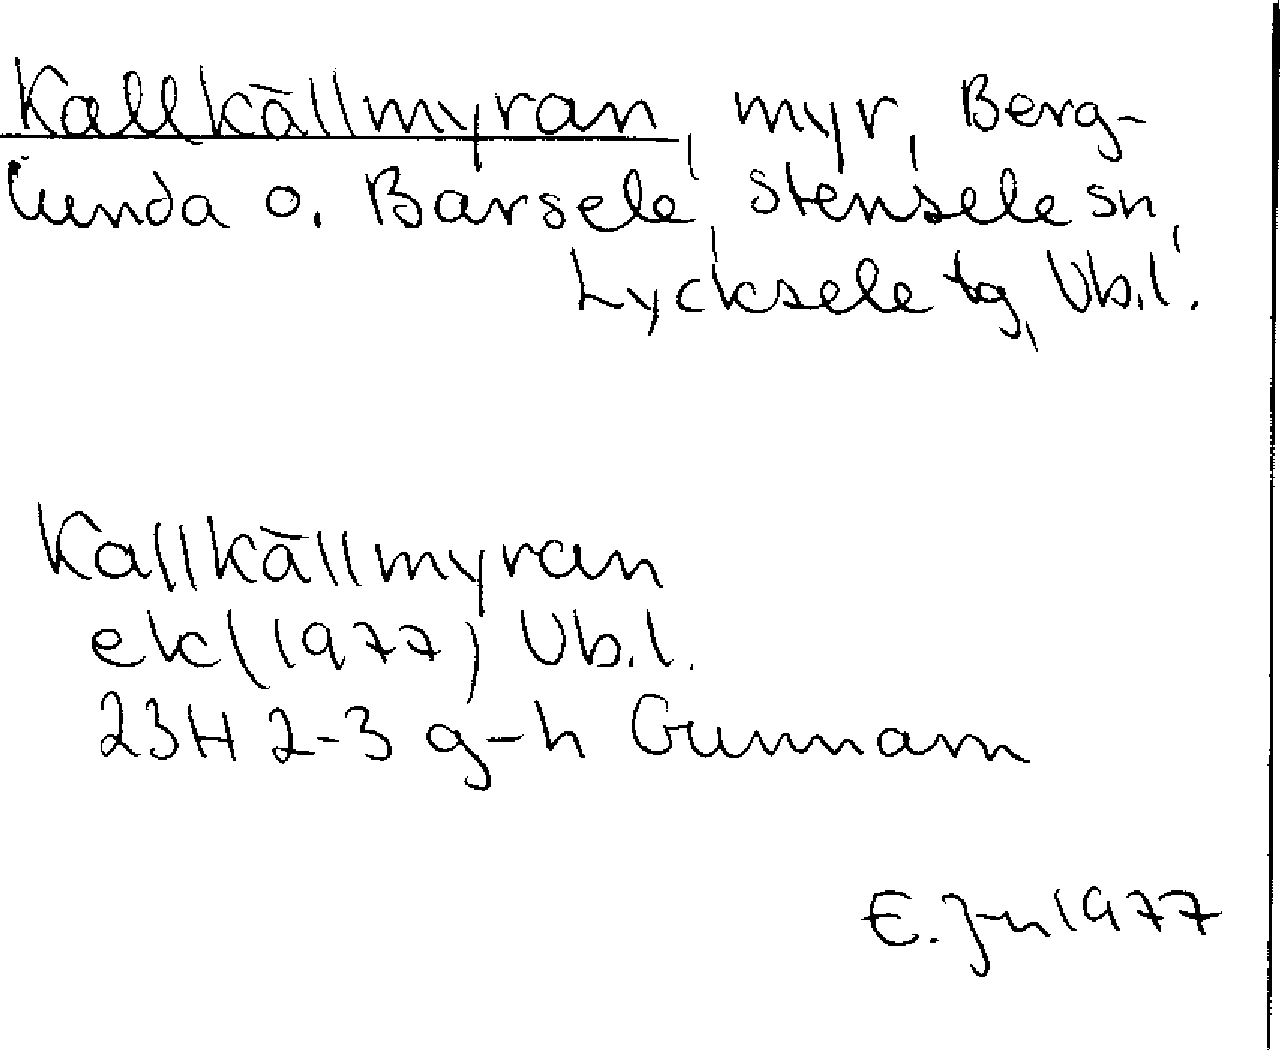 Kallkällmyran, myr, Berg-
lunda o. Barsele, Stensele sn,
Lycksele tg, Vb.l.
Kallkällmyran
ek (1977) Vb.l.
23H 2-3 g-h Gunnarn
E. Jn 1977